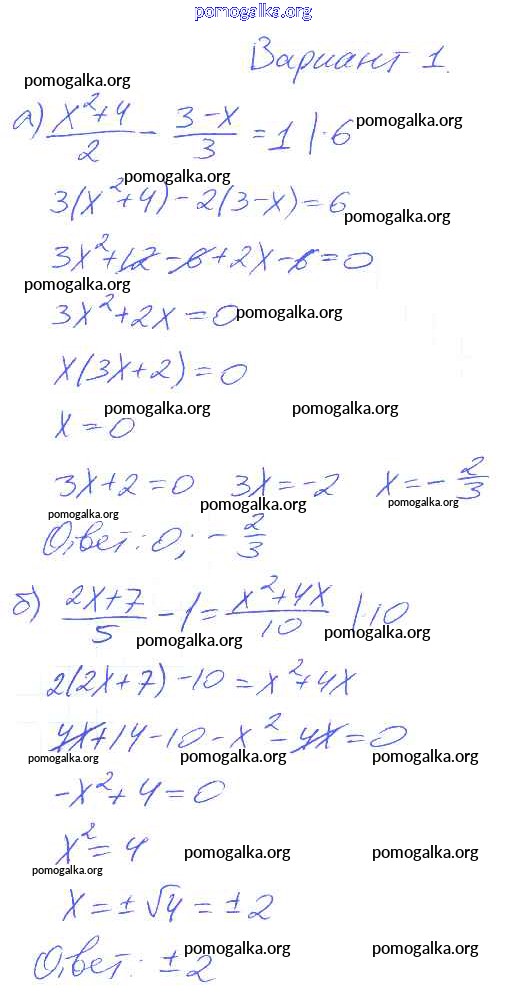 pomogalka.org
Вариант 1.
pomogalka.org
а) (x²+4)/2 - (3-x)/3 = 1 | · 6 pomogalka.org
pomogalka.org
3(x²+4) - 2(3-x) = 6 pomogalka.org
3x²+12-6+2x-6=0
pomogalka.org
3x²+2x=0 pomogalka.org
x(3x+2)=0
pomogalka.org pomogalka.org
x=0
3x+2=0 3x=-2 x=-2/3
pomogalka.org pomogalka.org pomogalka.org
Ответ: 0; -2/3
б) (2x+7)/5 - 1 = (x²+4x)/10 | · 10
pomogalka.org pomogalka.org
2(2x+7)-10=x²+4x
4x+14-10-x²-4x=0
pomogalka.org pomogalka.org pomogalka.org
-x²+4=0
x²=4 pomogalka.org pomogalka.org
pomogalka.org
x=±√4=±2
Ответ: ±2 pomogalka.org pomogalka.org